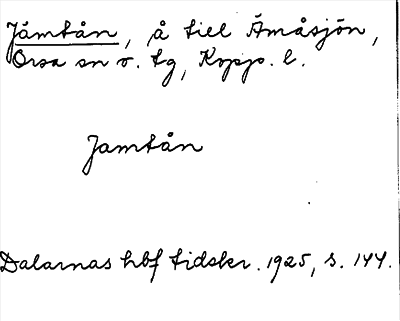 Jämtån, å till Ämåsjön,
Orsa sn o. tg, Kopp. l.
Jamtån
Dalarnas hbf tidskr. 1925, s. 144.